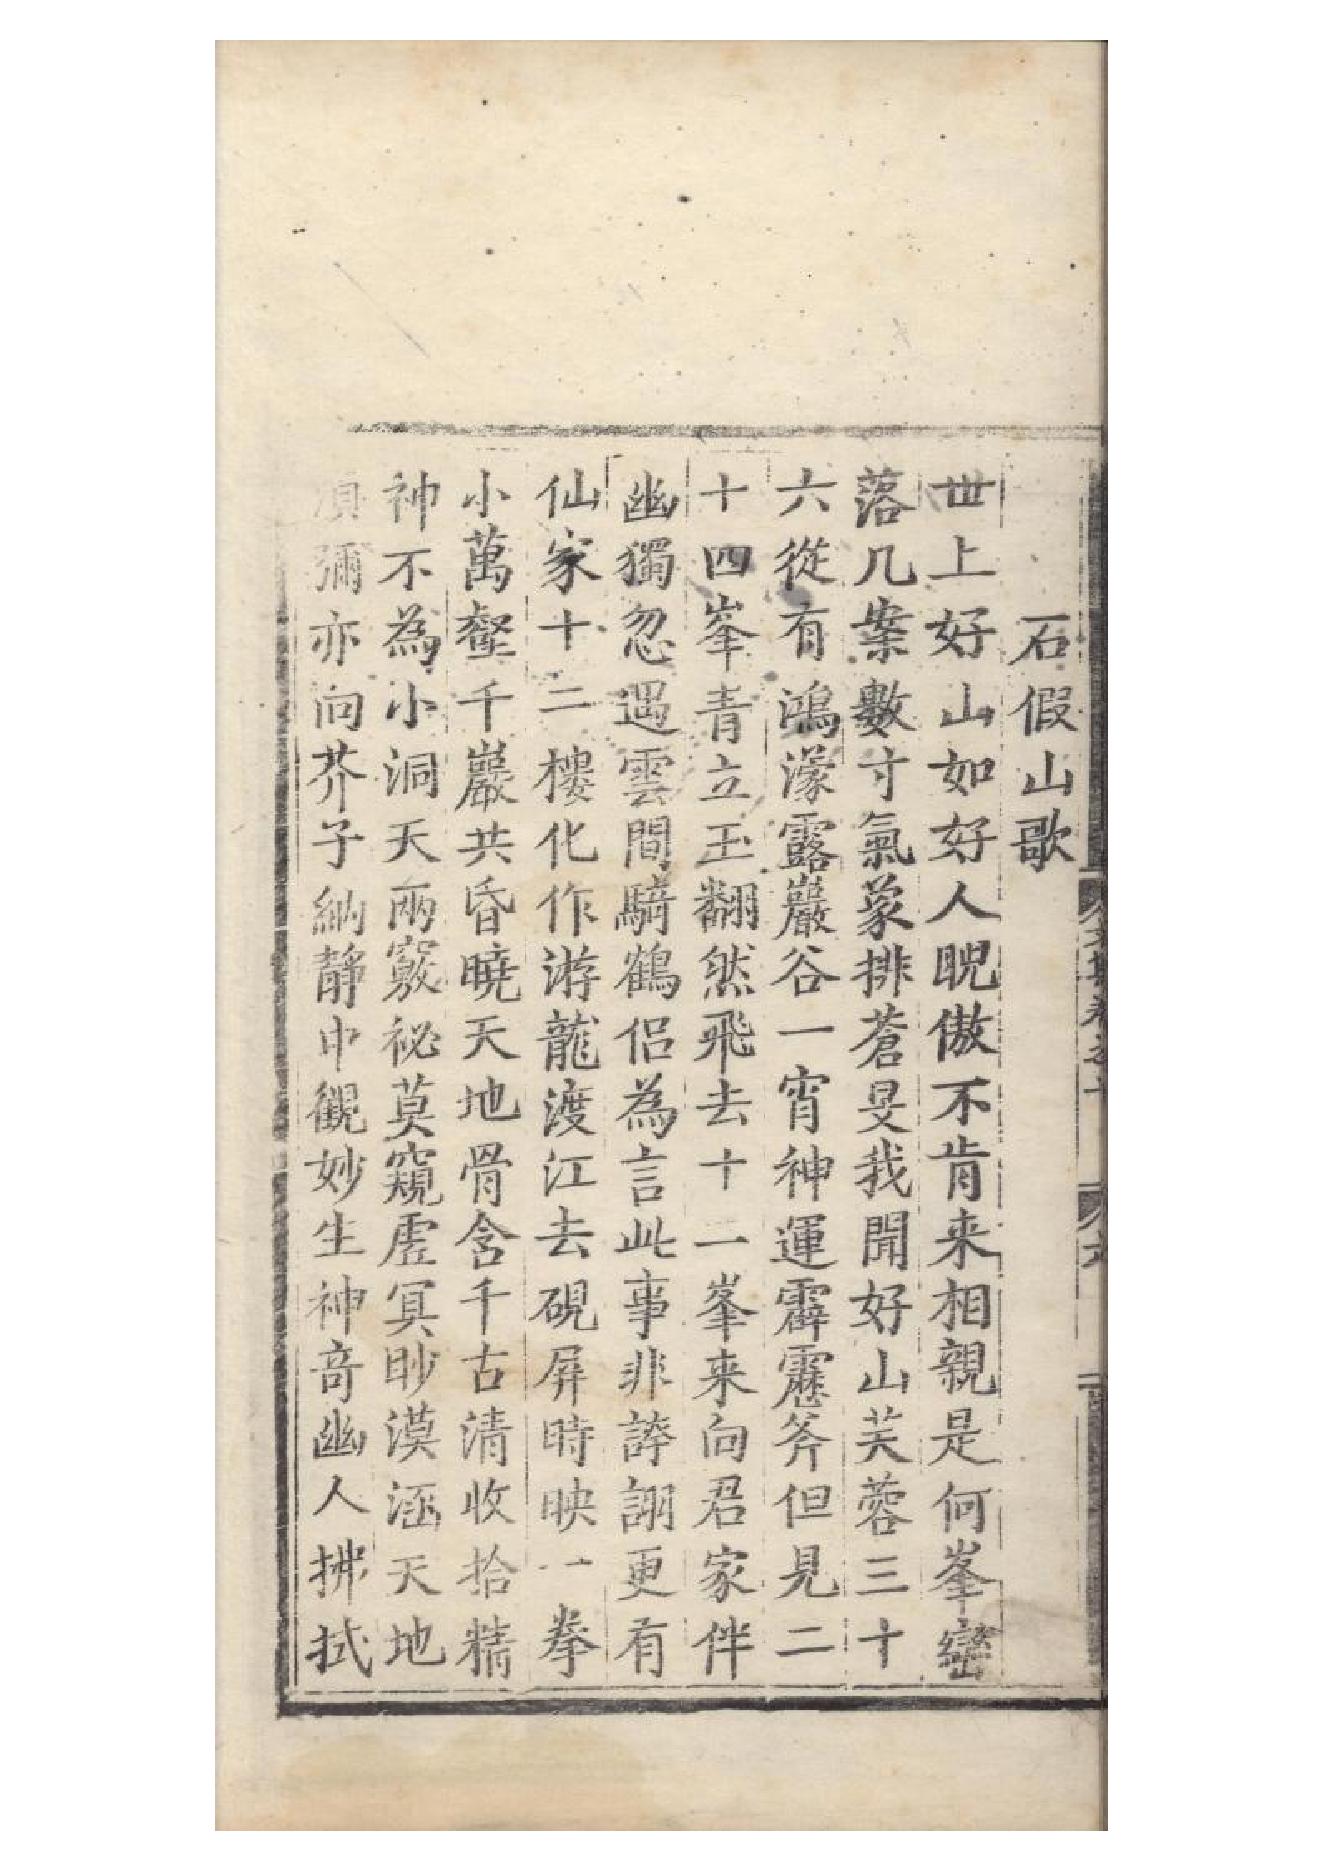 石假山歌
世上好山如好人睨傲不肯来相親是何峯巒
落几案數寸氣象排蒼旻我聞好山芙蓉三十
六從有鴻濛露巖谷一宵神運霹靂斧但見二
十四峯青立玉翻然飛去十二峯来向君家伴
幽獨忽遇雲間騎鶴侶為言此事非誇詡更有
仙家十二樓化作游龍渡江去硯屏時映一拳
小萬壑千巖共昏曉天地骨含千古清收拾精
神不為小洞天兩竅祕莫窺虛冥眇漠涵天地
須彌亦向芥子納靜中觀妙生神竒幽人拂拭